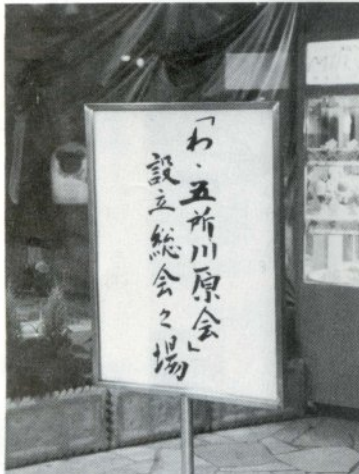 「わ・五所川原会」
設立総会々場